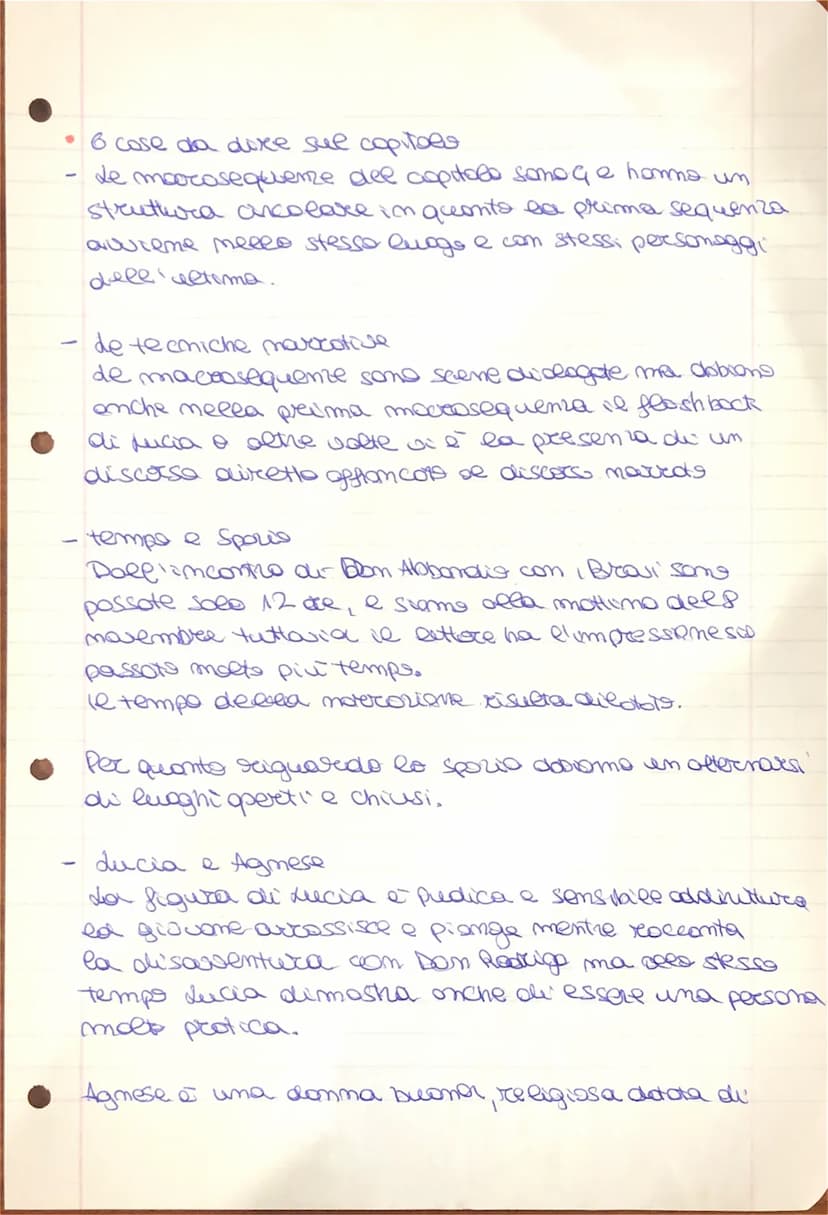 • 6 cose da dire sul capitolo
- Le macrosequenze del capitolo sono 4 e hanno un
struttura circolare in quanto la prima sequenza
avviene nello stesso luogo e con stessi personaggi
dell'ultima.
- Le tecniche narrative
Le macrosequenze sono scene dialogate ma abbiamo
anche nella prima macrosequenza il flashback
di Lucia o altre volte vi è la presenza di un
discorso diretto affiancato al discorso narrato
- tempo e Spazio
Dall'incontro di Don Abbondio con i Bravi sono
passate solo 12 ore, e siamo alla mattina dell'8
novembre tuttavia il lettore ha l'impressione sia
passato molto più tempo.
Il tempo della narrazione risulta dilatato.
Per quanto riguardo lo spazio abbiamo un alternarsi
di luoghi aperti e chiusi.
- Lucia e Agnese
La figura di Lucia è pudica e sensibile addirittura
la giovane arrossisce e piange mentre racconta
la disavventura con Don Rodrigo ma allo stesso
tempo Lucia dimostra anche di essere una persona
molto pratica.
Agnese è una donna buona, religiosa dotata di